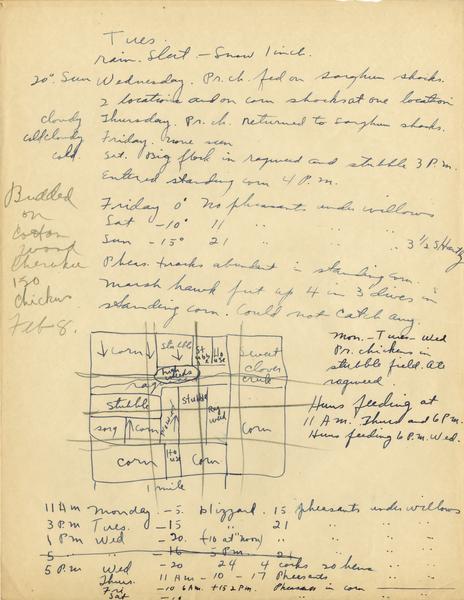 Tues.
rain. Sleet - Snow 1 inch.
20°. Sun Wednesday. Pr. ch. fed on sorghum shocks.
2 locations and on corn shocks at one location
cloudy Thursday. Pr. ch. returned to sorghum shocks.
cold cloudy Friday. none seen
cold. Sat. Big flock in ragweed and stubble 3 P.m.
Entered standing corn 4 P.m.
Friday 0° No pheasants under willows
Sat -10° 11 " " "
Sun -15° 21 " " " 3 1/2 S
Pheas. tracks abundant in standing corn.
marsh hawk put up 4 in 3 dives in
standing corn. Could not catch any.
Budded
on
cotton
wood
Cherokee
150
chickens
Feb-8.
corn
Stubble
House
sweet
clover
weeds
rag
stubble
stubble
Rag
weed
sorg
corn
corn
corn
House
corn
1 mile
mon. - Tues - Wed
Pr. chickens in
stubble field. ate
ragweed.
Huns feeding at
11 A.m. Thurs and 6 P.m.
Huns feeding 6 P.m. Wed.
11 Am Monday -5. blizzard. 15 pheasants under willows
3 P.m Tues. -15 21 " " "
1 P.m Wed -20. (-10 at noon) " " "
5 " -16 5 P.m. 21
5 P.m. Wed -20 24 4 cocks 20 hens " "
Thurs. 11 Am -10 -17 Pheasants " "
Fri. -10 6 Am. +15 2 P.m. Pheasants in corn
Sat -10